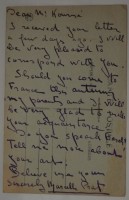 Dear Mr
I received your letter
a few days ago. I will
be very pleased to
correspond with you.
Should you come to
France this autumn
my parents and I will
be very glad to
your acquaintance
Do you speak French
Tell me more about
your
Believe me yours
sincerely